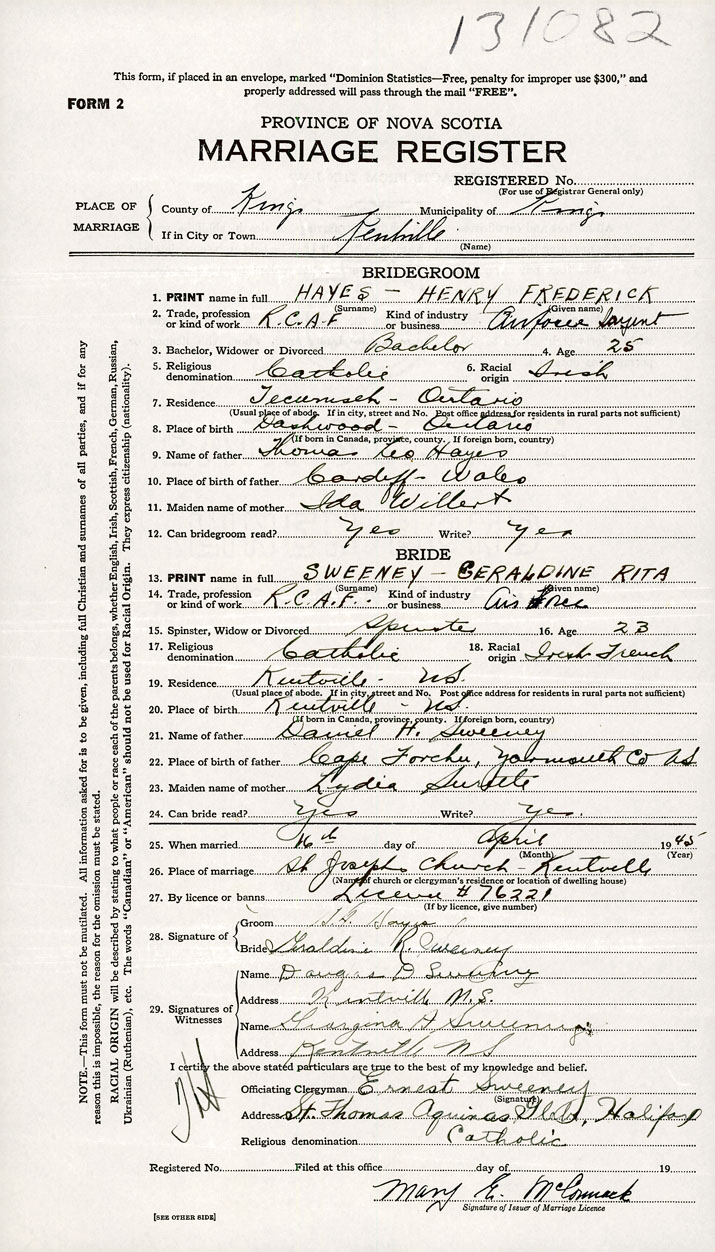 131082
This form, if placed in an envelope, marked "Dominion Statistics—Free, penalty for improper use $300," and
properly addressed will pass through the mail "FREE".
FORM 2
PROVINCE OF NOVA SCOTIA
MARRIAGE REGISTER
REGISTERED No.
(For use of Registrar General only)
PLACE OF MARRIAGE
County of Kings Municipality of Kings
If in City or Town Kentville
(Name)
BRIDEGROOM
1. PRINT name in full HAYES - HENRY FREDERICK
(Surname) (Given name)
2. Trade, profession or kind of work R.C.A.F Kind of industry or business Airforce Sargent
3. Bachelor, Widower or Divorced Bachelor 4. Age 25
5. Religious denomination Catholic 6. Racial origin Irish
7. Residence Tecumseh - Ontario
(Usual place of abode. If in city, street and No. Post office address for residents in rural parts not sufficient)
8. Place of birth Dashwood - Ontario
(If born in Canada, province, county. If foreign born, country)
9. Name of father Thomas Leo Hayes
10. Place of birth of father Cardiff - Wales
11. Maiden name of mother Ida Willert
12. Can bridegroom read? Yes Write? Yes
BRIDE
13. PRINT name in full SWEENEY - GERALDINE RITA
(Surname) (Given name)
14. Trade, profession or kind of work R.C.A.F. Kind of industry or business Air Force
15. Spinster, Widow or Divorced Spinster 16. Age 23
17. Religious denomination Catholic 18. Racial origin Irish French
19. Residence Kentville - N.S.
(Usual place of abode. If in city, street and No. Post office address for residents in rural parts not sufficient)
20. Place of birth Kentville - N.S.
(If born in Canada, province, county. If foreign born, country)
21. Name of father Daniel H. Sweeney
22. Place of birth of father Cape Forchu, Yarmouth Co NS
23. Maiden name of mother Lydia Surette
24. Can bride read? Yes Write? Yes.
25. When married 16th day of April 1945
(Month) (Year)
26. Place of marriage St Josephs Church Kentville
(Name of church or clergyman's residence or location of dwelling house)
27. By licence or banns Licence # 76221
(If by licence, give number)
28. Signature of
Groom Hayes
Bride Geraldine R. Sweeney
29. Signatures of Witnesses
Name D Sweeney
Address Kentville N.S.
Name Georgina A Sweeney
Address Kentville NS
I certify the above stated particulars are true to the best of my knowledge and belief.
Officiating Clergyman Ernest Sweeney
(Signature)
Address St. Thomas Aquinas Glebe, Halifax
Religious denomination Catholic
Registered No. Filed at this office day of 19
Mary E. McCormack
Signature of Issuer of Marriage Licence
[SEE OTHER SIDE]
NOTE.—This form must not be mutilated. All information asked for is to be given, including full Christian and surnames of all parties, and if for any
reason this is impossible, the reason for the omission must be stated.
RACIAL ORIGIN will be described by stating to what people or race each of the parents belongs, whether English, Irish, Scottish, French, German, Russian,
Ukrainian (Ruthenian), etc. The words "Canadian" or "American" should not be used for Racial Origin. They express citizenship (nationality).